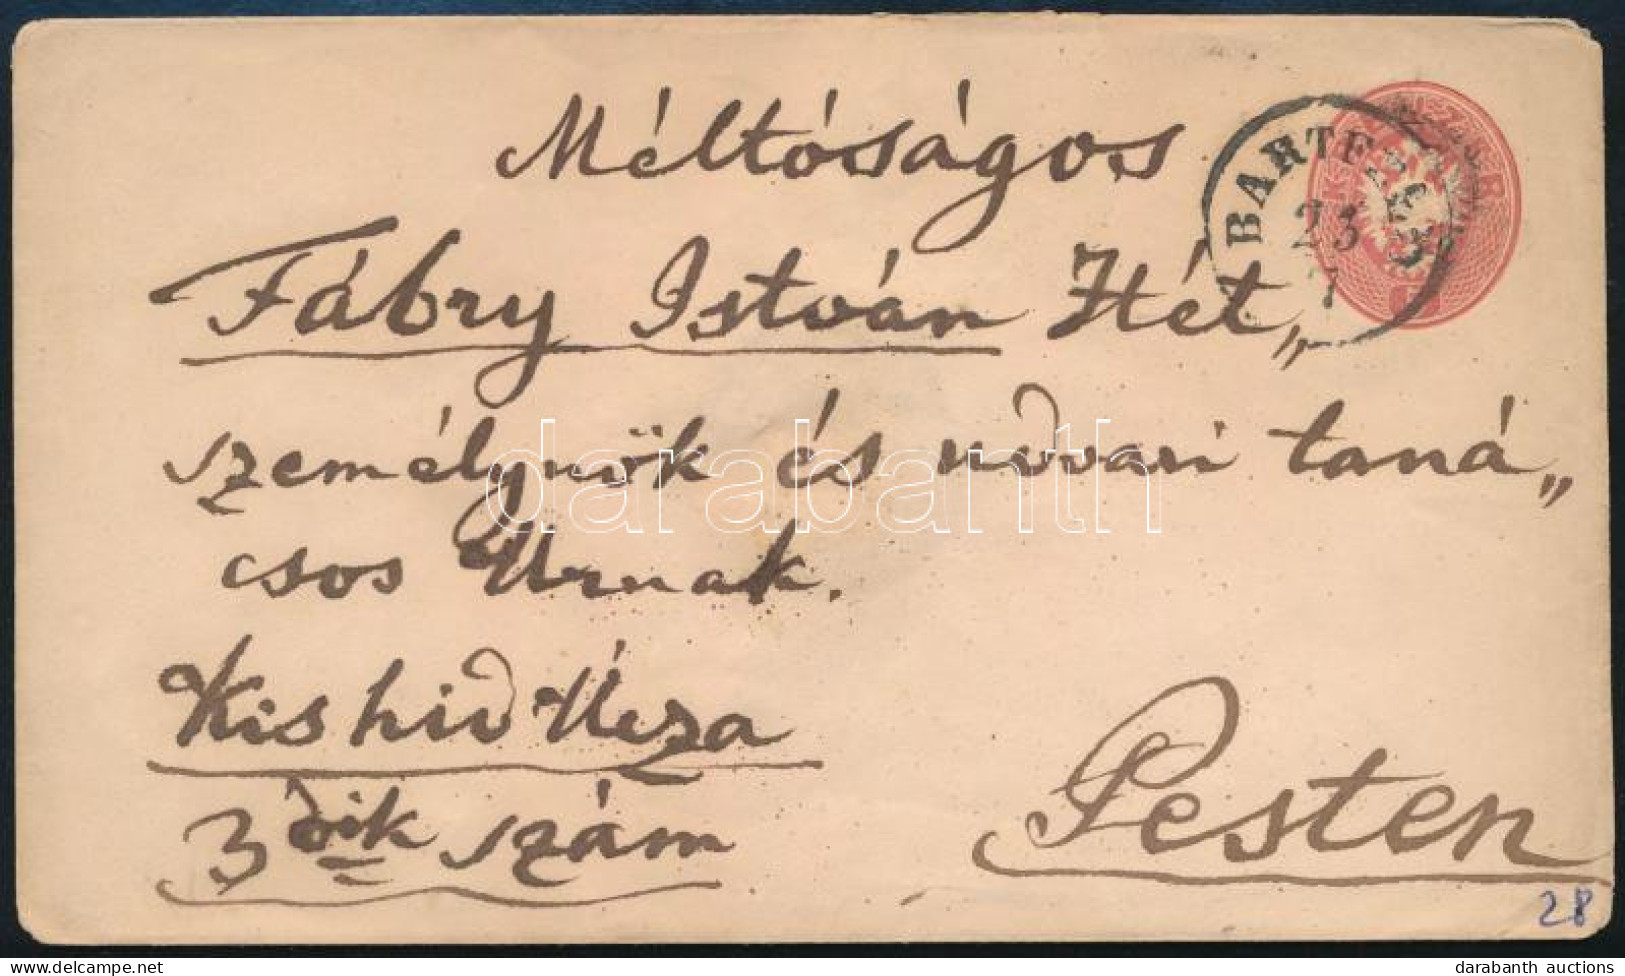 Méltóságos
Fábry István Hét„
személynök és udvari taná„
csos Úrnak.
Kis hid Utza
3dik szám
Pesten
BARTF
23
7
28
darabanth
delcampe.net
darabanth auctions